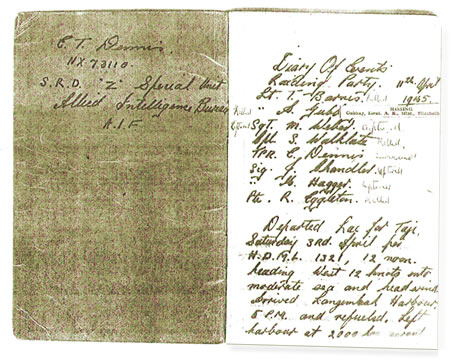 E. T. Dennis
NX 73110
S.R.D. "Z" Special Unit
Allied Intelligence Bureau
A.I.F
Diary Of Events
Raiding Party. 11th April
1945.
Lt. T. Barnes. Killed
" A. Gubb Killed
Sgt. M. Weber Captured
Spr. S. Walklate Killed
SPR. E. Dennis
Sig. J. Chandler Captured
" H. Hagger Captured
Pte. R. Eggleton Killed
Departed Lae for Taji
Saturday 3rd. April per
H.D.M.L. 1321, 12 noon.
heading West 12 knots into
moderate sea and headwind.
Arrived Langemak Harbour
5 P.M. and refueled. Left
harbour at 2000 hrs